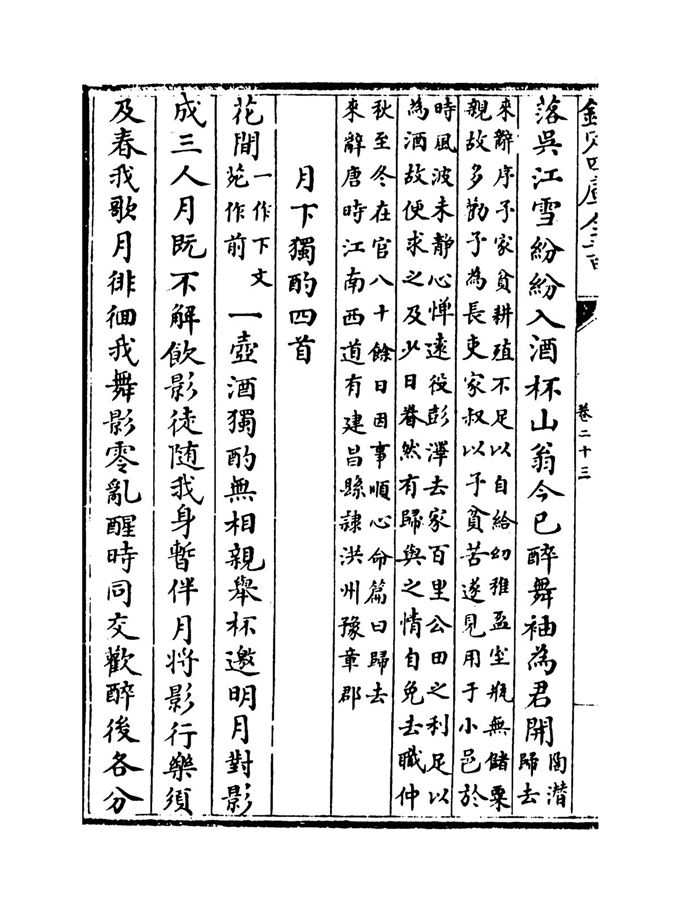 欽定四庫全書
卷二十三
落吳江雪紛紛入酒杯山翁今已醉舞袖為君開陶潛歸去
來辭序予家貧耕殖不足以自給幼稚盈室瓶無儲粟
親故多勸予為長吏家叔以予貧苦遂見用于小邑於
時風波未靜心憚遠役彭澤去家百里公田之利足以
為酒故便求之及少日眷然有歸與之情自免去職仲
秋至冬在官八十餘日因事順心命篇曰歸去
來辭唐時江南西道有建昌縣隸洪州豫章郡
月下獨酌四首
花間一作下文苑作前一壺酒獨酌無相親舉杯邀明月對影
成三人月既不解飲影徒隨我身暫伴月將影行樂須
及春我歌月徘徊我舞影零亂醒時同交歡醉後各分